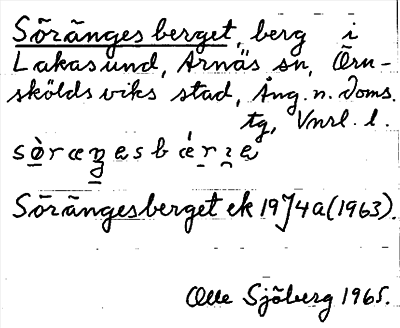 Sörängesberget, berg i
Lakasund, Arnäs sn, Örn-
sköldsviks stad, Ång. n. doms.
tg, Vnrl. l.
Sörängesberget ek 19J4a (1963).
Olle Sjöberg 1965.